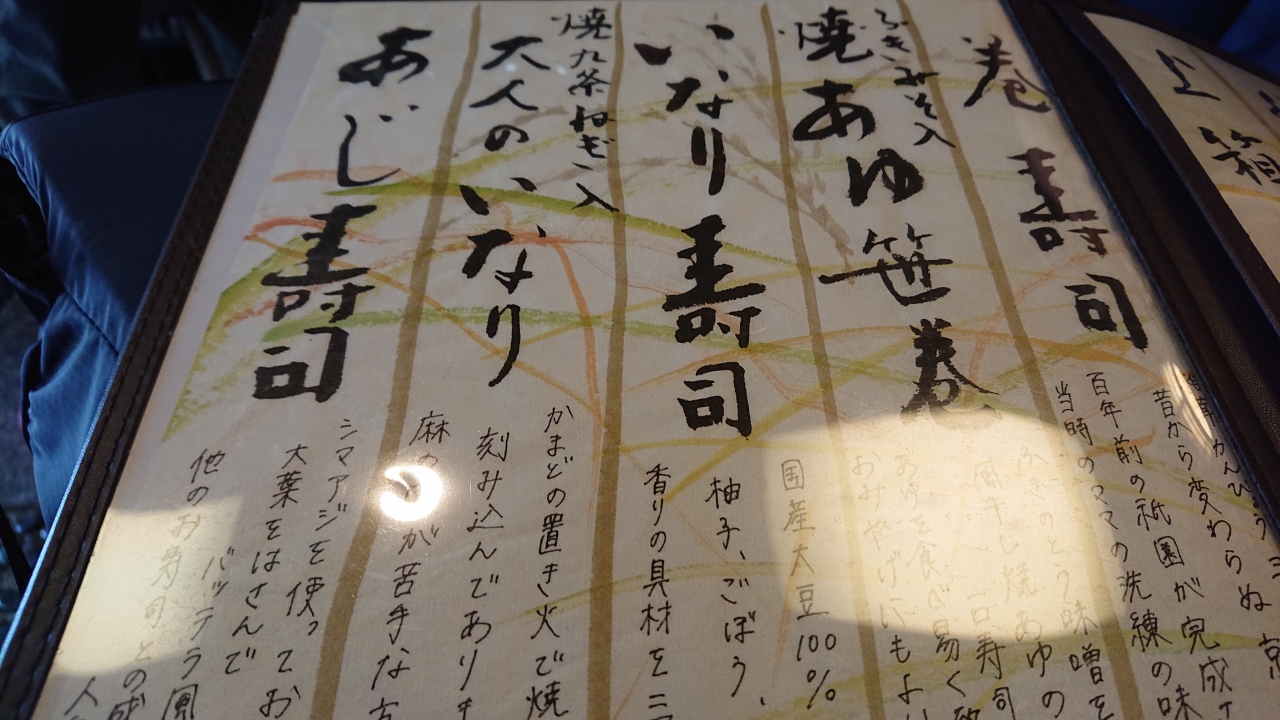 上箱
巻寿司
昔から変わらぬ京
百年前の祇園が完成
当時のママの洗練の味
ふきみそ入
焼あゆ笹巻
ふきのとう味噌を
風干し焼あゆの
あゆを食べ易く
おみやげにもよ
いなり寿司
国産大豆100%
柚子、ごぼう、
香りの具材を三
焼九条ねぎ入
大人のいなり
かまどの置き火で焼
刻み込んでありま
麻の
が苦手な方
あじ寿司
シマアジを使っ
大葉をはさんで
てお
バッテラ風
他のお寿司との